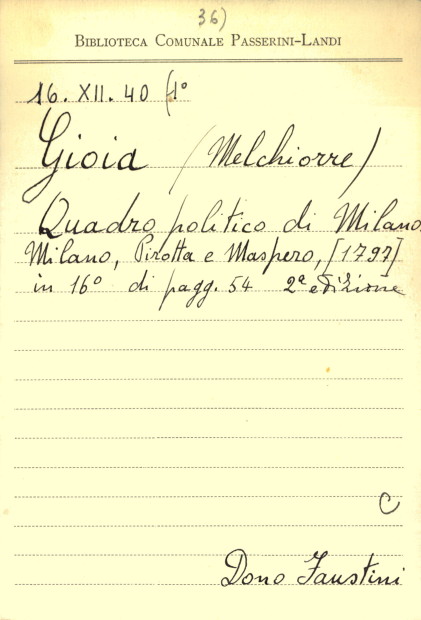 36)
BIBLIOTECA COMUNALE PASSERINI-LANDI
16. XII. 40 (1°
Gioia (Melchiorre)
Quadro politico di Milano.
Milano, Pirotta e Maspero, [1797]
in 16° di pagg. 54 2ª edizione
C
Dono Faustini